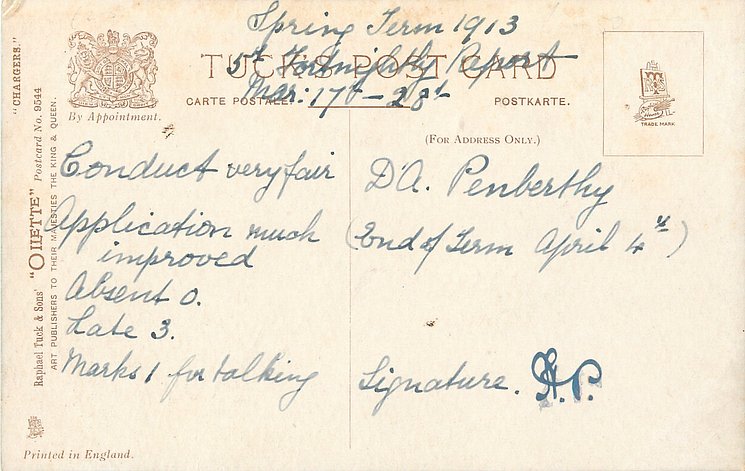 Spring Term 1913
5th Fortnightly Report
Mar: 17th - 28th
TUCK'S POST CARD
CARTE POSTALE.
POSTKARTE.
By Appointment.
(FOR ADDRESS ONLY.)
TRADE MARK
"CHARGERS."
Raphael Tuck & Sons' "OILETTE" Postcard No. 9544
ART PUBLISHERS TO THEIR MAJESTIES THE KING & QUEEN.
Conduct very fair
Application much
improved
Absent 0.
Late 3.
Marks 1 for talking
D'A. Penberthy
(End of Term April 4th)
Signature. H.P.
Printed in England.